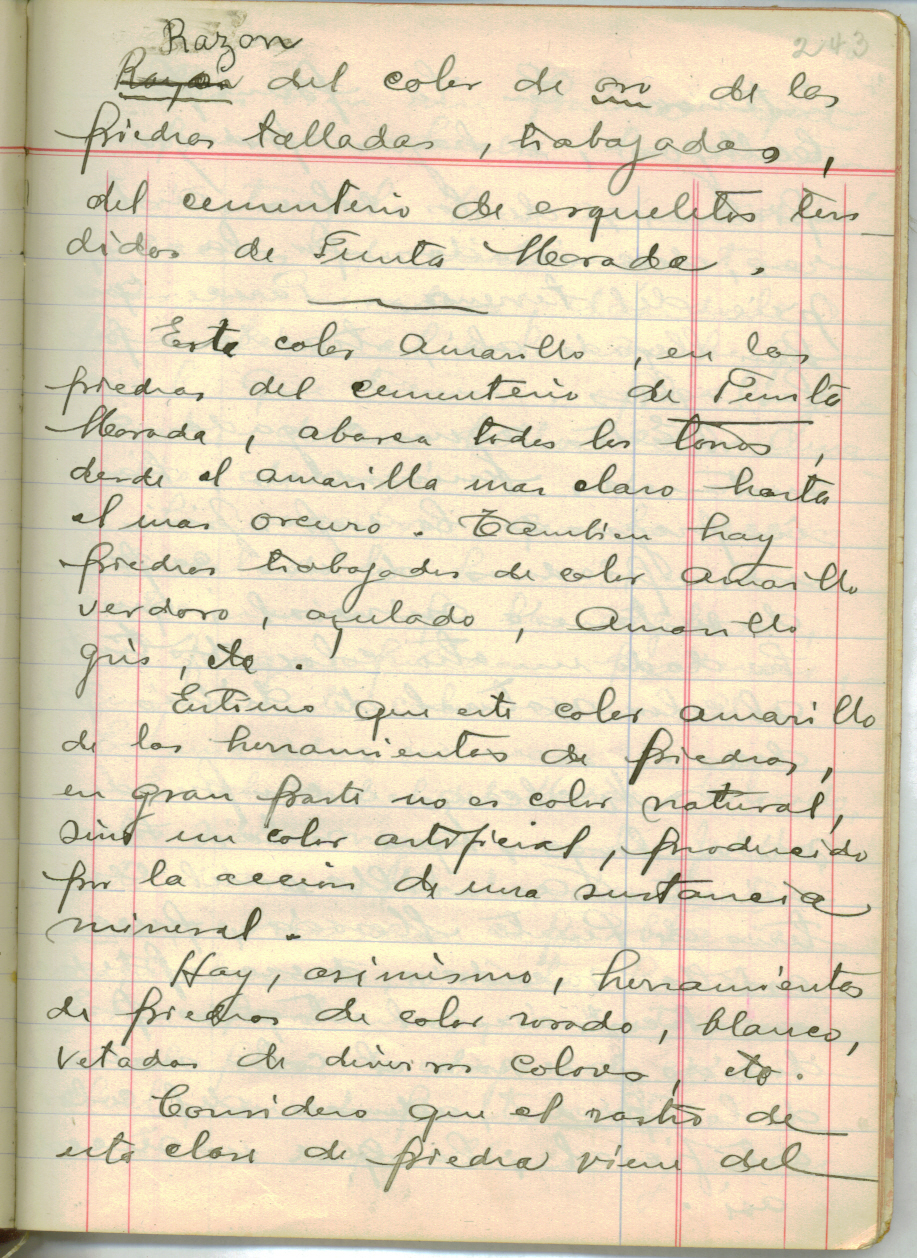 243
Razon
Rayos del color de oro de las
piedras talladas, trabajadas,
del cementerio de esqueletos ten
didos de Punta Morada.
Este color Amarillo, en las
piedras del cementerio de Punta
Morada, abarca todos los tonos,
desde el amarillo mas claro hasta
el mas oscuro. Tambien hay
piedras trabajadas de color amarillo
verdoso, azulado, Amarillo
gris, etc.
Estimo que este color amarillo
de las herramientas de piedras,
en gran parte no es color natural,
sino un color artificial, producido
por la accion de una sustancia
mineral.
Hay, asimismo, herramientas
de piedras de color rosado, blanco,
vetadas de diversos colores, etc.
Considero que el rastro de
esta clase de piedra viene del